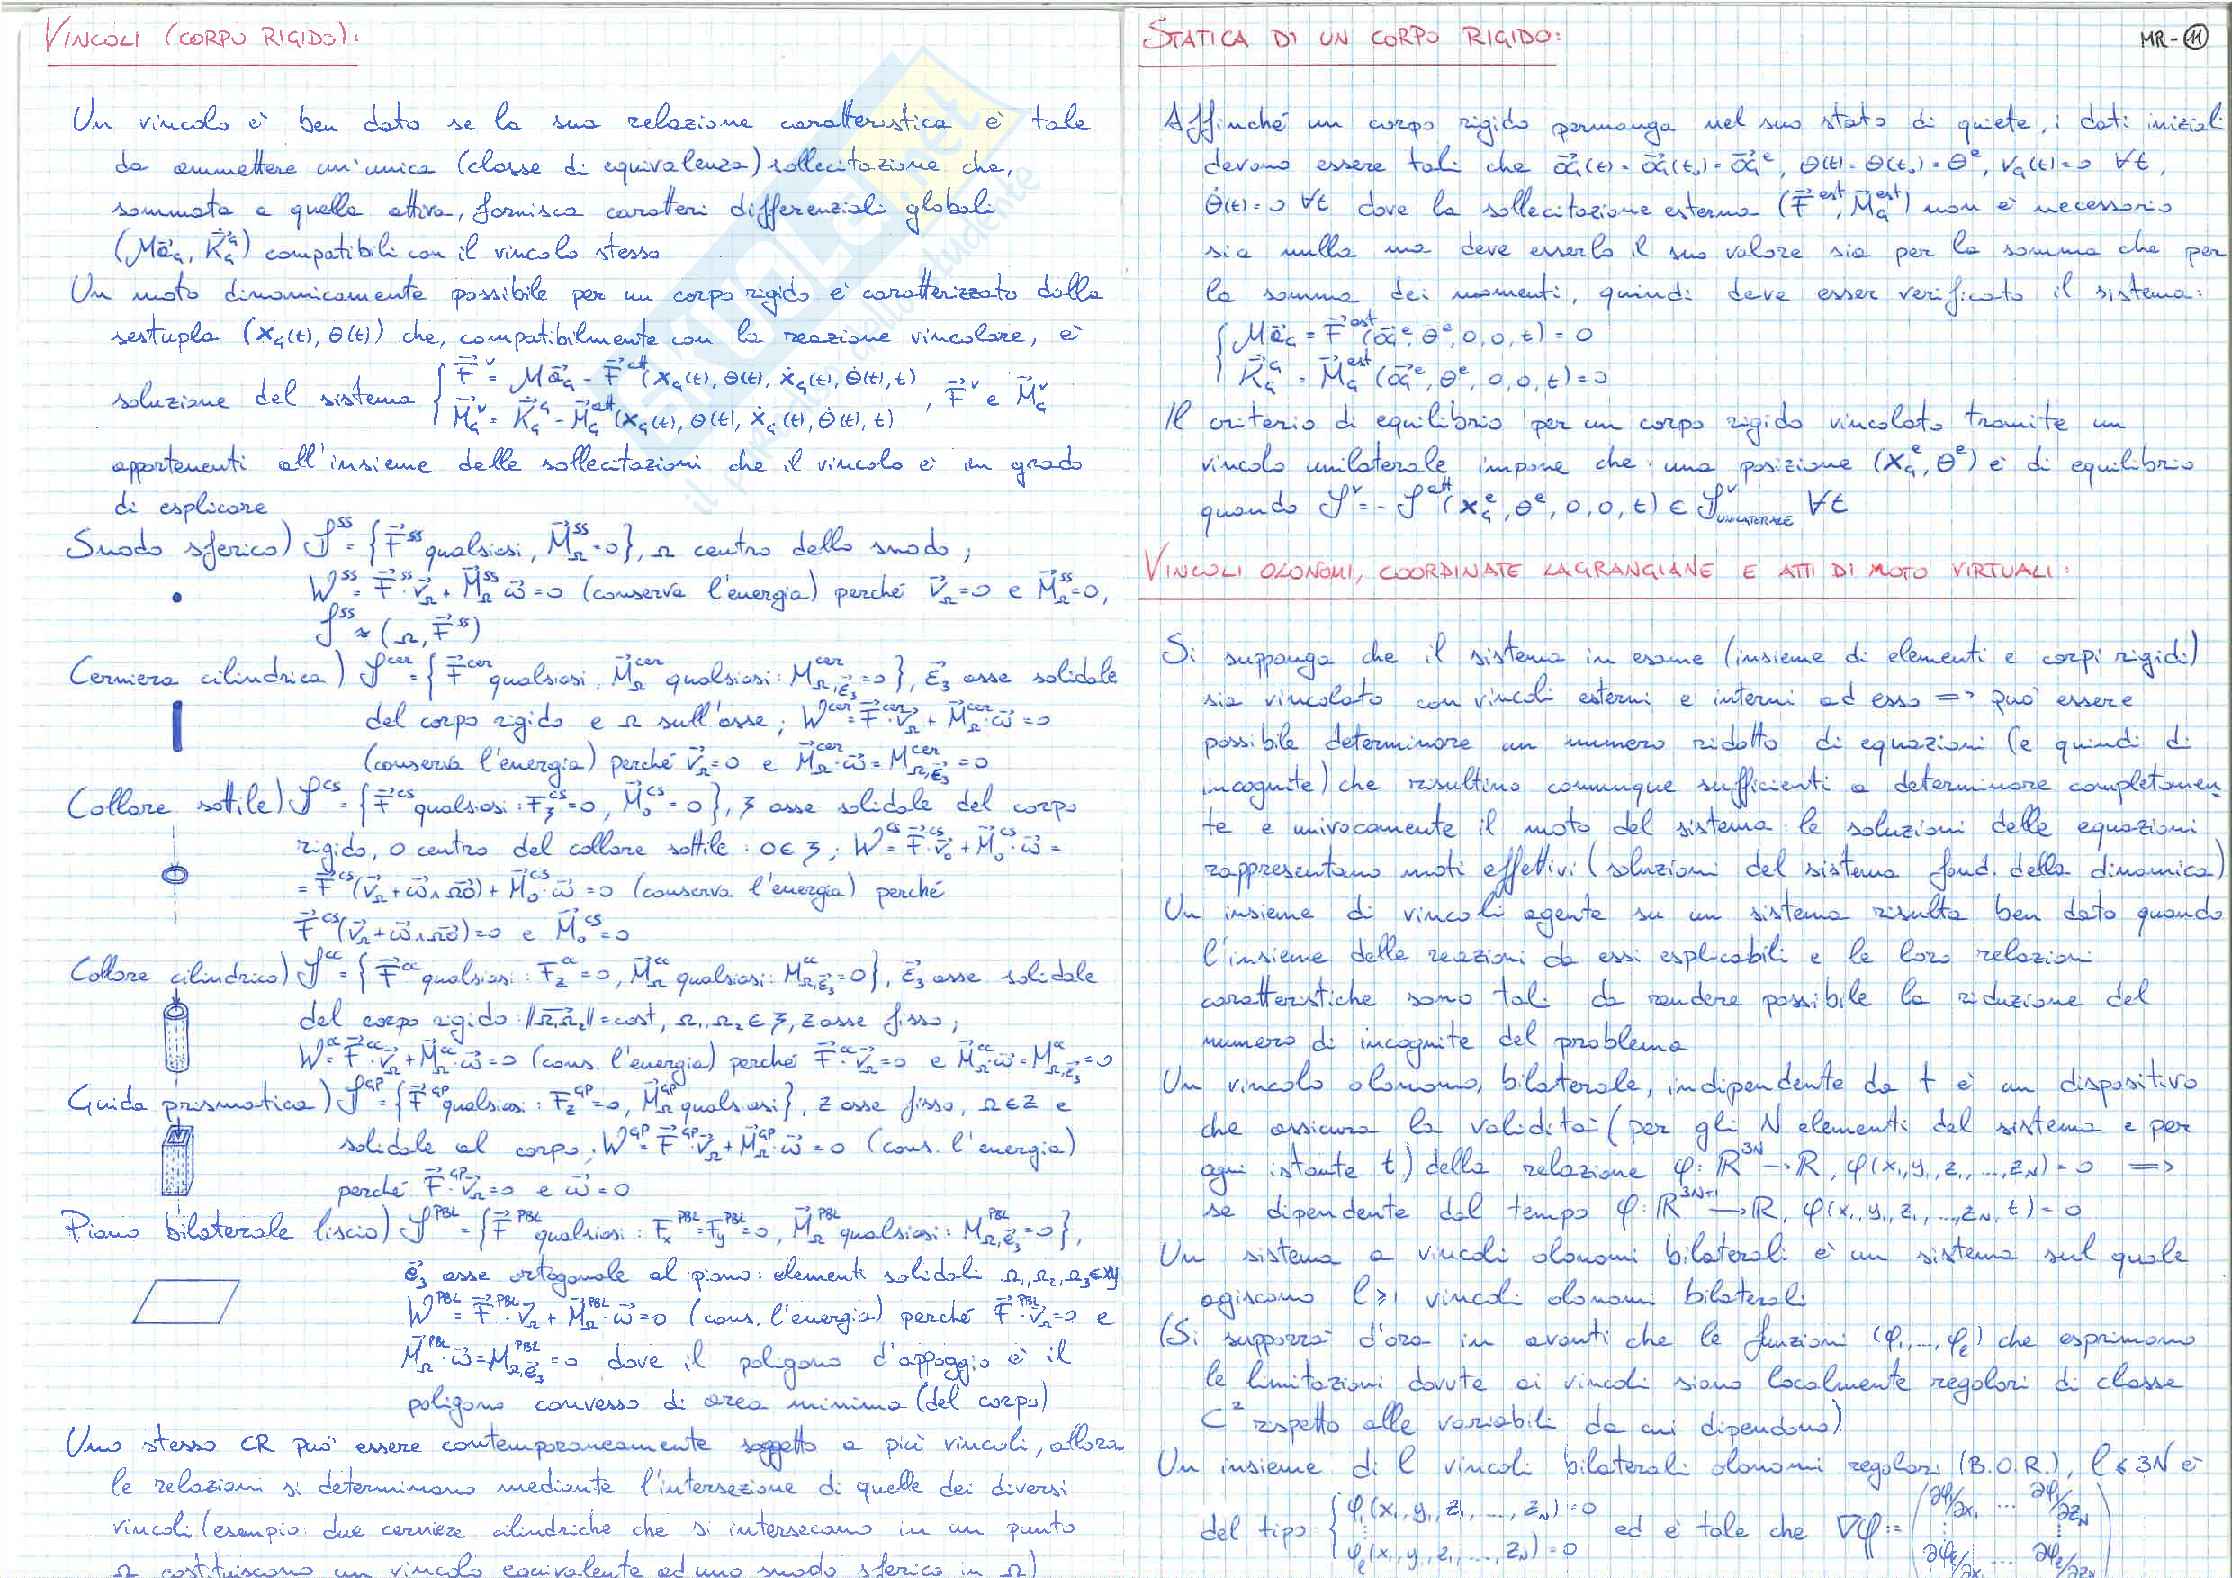 VINCOLI (CORPO RIGIDO):
Un vincolo è ben dato se la sua relazione caratteristica è tale
da ammettere un'unica (classe di equivalenza) sollecitazione che,
sommata a quella attiva, fornisca caratteri differenziali globali
(Ma⃗_G, K⃗̇_G) compatibili con il vincolo stesso
Un moto dinamicamente possibile per un corpo rigido è caratterizzato dalla
sestupla (x_G(t), θ(t)) che, compatibilmente con la reazione vincolare, è
soluzione del sistema { F⃗^v = Ma⃗_G - F⃗^att(x_G(t), θ(t), ẋ_G(t), θ̇(t), t)
M⃗_G^v = K⃗̇_G - M⃗_G^att(x_G(t), θ(t), ẋ_G(t), θ̇(t), t) , F⃗^v e M⃗_G^v
appartenenti all'insieme delle sollecitazioni che il vincolo è in grado
di esplicare
Snodo sferico) 𝒮^SS = {F⃗^SS qualsiasi, M⃗_Ω^SS = 0}, Ω centro dello snodo;
W^SS = F⃗^SS · v⃗_Ω + M⃗_Ω^SS · ω⃗ = 0 (conserva l'energia) perché v⃗_Ω = 0 e M⃗_Ω^SS = 0,
𝒮^SS ≈ (Ω, F⃗^SS)
Cerniera cilindrica) 𝒮^cer = {F⃗^cer qualsiasi, M⃗_Ω^cer qualsiasi: M_Ω,e⃗₃^cer = 0}, e⃗₃ asse solidale
del corpo rigido e Ω sull'asse; W^cer = F⃗^cer · v⃗_Ω + M⃗_Ω^cer · ω⃗ = 0
(conserva l'energia) perché v⃗_Ω = 0 e M⃗_Ω^cer · ω⃗ = M_Ω,e⃗₃^cer = 0
Collare sottile) 𝒮^CS = {F⃗^CS qualsiasi: F_ξ^CS = 0, M⃗_o^CS = 0}, ξ asse solidale del corpo
rigido, O centro del collare sottile: O ∈ ξ; W^CS = F⃗^CS · v⃗_o + M⃗_o^CS · ω⃗ =
= F⃗^CS (v⃗_Ω + ω⃗ ∧ ΩO⃗) + M⃗_o^CS · ω⃗ = 0 (conserva l'energia) perché
F⃗^CS (v⃗_Ω + ω⃗ ∧ ΩO⃗) = 0 e M⃗_o^CS = 0
Collare cilindrico) 𝒮^CC = {F⃗^CC qualsiasi: F_z^CC = 0, M⃗_Ω^CC qualsiasi: M_Ω,e⃗₃^CC = 0}, e⃗₃ asse solidale
del corpo rigido: ||Ω₁Ω₂|| = cost, Ω₁, Ω₂ ∈ ξ, z asse fisso;
W^CC = F⃗^CC · v⃗_Ω + M⃗_Ω^CC · ω⃗ = 0 (cons. l'energia) perché F⃗^CC · v⃗_Ω = 0 e M⃗_Ω^CC · ω⃗ = M_Ω,e⃗₃^CC = 0
Guida prismatica) 𝒮^GP = {F⃗^GP qualsiasi: F_z^GP = 0, M⃗_Ω^GP qualsiasi}, z asse fisso, Ω ∈ z e
solidale al corpo; W^GP = F⃗^GP · v⃗_Ω + M⃗_Ω^GP · ω⃗ = 0 (cons. l'energia)
perché F⃗^GP · v⃗_Ω = 0 e ω⃗ = 0
Piano bilaterale liscio) 𝒮^PBL = {F⃗^PBL qualsiasi: F_x^PBL = F_y^PBL = 0, M⃗_Ω^PBL qualsiasi: M_Ω,e⃗₃^PBL = 0},
e⃗₃ asse ortogonale al piano: elementi solidali Ω₁, Ω₂, Ω₃ ∈ xy
W^PBL = F⃗^PBL · v⃗_Ω + M⃗_Ω^PBL · ω⃗ = 0 (cons. l'energia) perché F⃗^PBL · v⃗_Ω = 0 e
M⃗_Ω^PBL · ω⃗ = M_Ω,e⃗₃^PBL = 0 dove il poligono d'appoggio è il
poligono convesso di area minima (del corpo)
Uno stesso CR può essere contemporaneamente soggetto a più vincoli, allora
le relazioni si determinano mediante l'intersezione di quelle dei diversi
vincoli (esempio: due cerniere cilindriche che si intersecano in un punto
Ω costituiscono un vincolo equivalente ad uno snodo sferico in Ω)
STATICA DI UN CORPO RIGIDO:
MR-11
Affinché un corpo rigido permanga nel suo stato di quiete, i dati iniziali
devono essere tali che OG⃗(t) = OG⃗(t₀) = OG⃗^e, θ(t) = θ(t₀) = θ^e, v_G(t) = 0 ∀t,
θ̇(t) = 0 ∀t dove la sollecitazione esterna (F⃗^est, M⃗_G^est) non è necessario
sia nulla ma deve esserlo il suo valore sia per la somma che per
la somma dei momenti, quindi deve esser verificato il sistema:
{ Ma⃗_G = F⃗^est (OG⃗^e, θ^e, 0, 0, t) = 0
K⃗̇_G = M⃗_G^est (OG⃗^e, θ^e, 0, 0, t) = 0
Il criterio di equilibrio per un corpo rigido vincolato tramite un
vincolo unilaterale impone che una posizione (x_G^e, θ^e) è di equilibrio
quando 𝒮^v = -𝒮^att (x_G^e, θ^e, 0, 0, t) ∈ 𝒮^v_UNILATERALE ∀t
VINCOLI OLONOMI, COORDINATE LAGRANGIANE E ATTI DI MOTO VIRTUALI:
Si supponga che il sistema in esame (insieme di elementi e corpi rigidi)
sia vincolato con vincoli esterni e interni ad esso => può essere
possibile determinare un numero ridotto di equazioni (e quindi di
incognite) che risultino comunque sufficienti a determinare completamen-
te e univocamente il moto del sistema: le soluzioni delle equazioni
rappresentano moti effettivi (soluzioni del sistema fond. della dinamica)
Un insieme di vincoli agente su un sistema risulta ben dato quando
l'insieme delle reazioni da essi esplicabili e le loro relazioni
caratteristiche sono tali da rendere possibile la riduzione del
numero di incognite del problema
Un vincolo olonomo, bilaterale, indipendente da t è un dispositivo
che assicura la validità (per gli N elementi del sistema e per
ogni istante t) della relazione φ: ℝ^3N → ℝ, φ(x₁, y₁, z₁, ..., z_N) = 0 =>
se dipendente dal tempo φ: ℝ^3N+1 → ℝ, φ(x₁, y₁, z₁, ..., z_N, t) = 0
Un sistema a vincoli olonomi bilaterali è un sistema sul quale
agiscono l ≥ 1 vincoli olonomi bilaterali
(Si supporrà d'ora in avanti che le funzioni (φ₁, ..., φ_l) che esprimono
le limitazioni dovute ai vincoli siano localmente regolari di classe
C² rispetto alle variabili da cui dipendono)
Un insieme di l vincoli bilaterali olonomi regolari (B.O.R.), l ≤ 3N è
del tipo { φ₁(x₁, y₁, z₁, ..., z_N) = 0
φ_l(x₁, y₁, z₁, ..., z_N) = 0 ed è tale che ∇φ := ( ∂φ₁/∂x₁ ... ∂φ₁/∂z_N
∂φ_l/∂x₁ ... ∂φ_l/∂z_N )